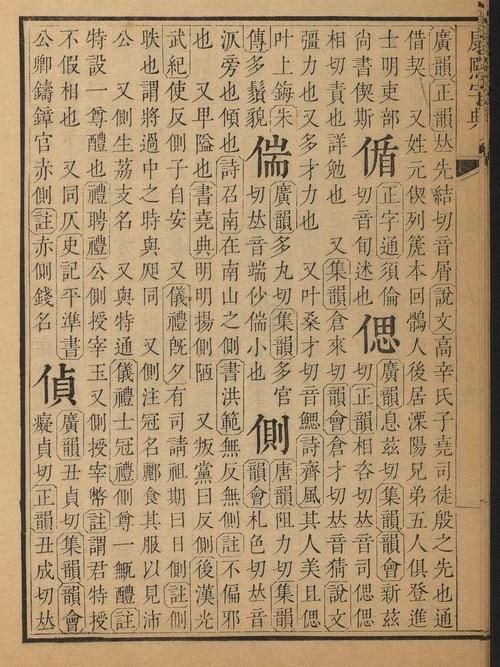 康熙字典
廣韻正韻𠀤先結切音屑說文高辛氏子堯司徒殷之先也通
借契 又姓元偰列篪本回鶻人後居溧陽兄弟五人俱登進
士明吏部
尚書偰斯
偱 正字通須倫
切音旬述也
偲 廣韻息茲切集韻韻會新茲
切正韻相咨切𠀤音司偲偲
相切責也詳勉也 又集韻倉來切韻會倉才切𠀤音猜說文
彊力也又多才力也 又叶桑才切音鰓詩齊風其人美且偲
叶上鋂朱
傳多鬚貌
偳 廣韻多丸切集韻多官
切𠀤音端仯偳小也
側 唐韻阻力切集韻
韻會札色切𠀤音
汄旁也傾也詩召南在南山之側書洪範無反無側註不偏邪
也 又𤰞隘也書堯典明明揚側陋 又叛黨曰反側後漢光
武紀使反側子自安 又儀禮旣夕有司請祖期曰日側註側
昳也謂將過中之時與昃同 又側注冠名酈食其服以見沛
公 又側生荔支名 又與特通儀禮士冠禮側尊一甒醴註
特設一尊醴也禮聘禮公側授宰玉又側授宰幣註謂君特授
不假相也 又同仄史記平準書
公卿鑄鐘官赤側註赤側錢名
偵 廣韻丑貞切集韻韻會
癡貞切正韻丑成切𠀤